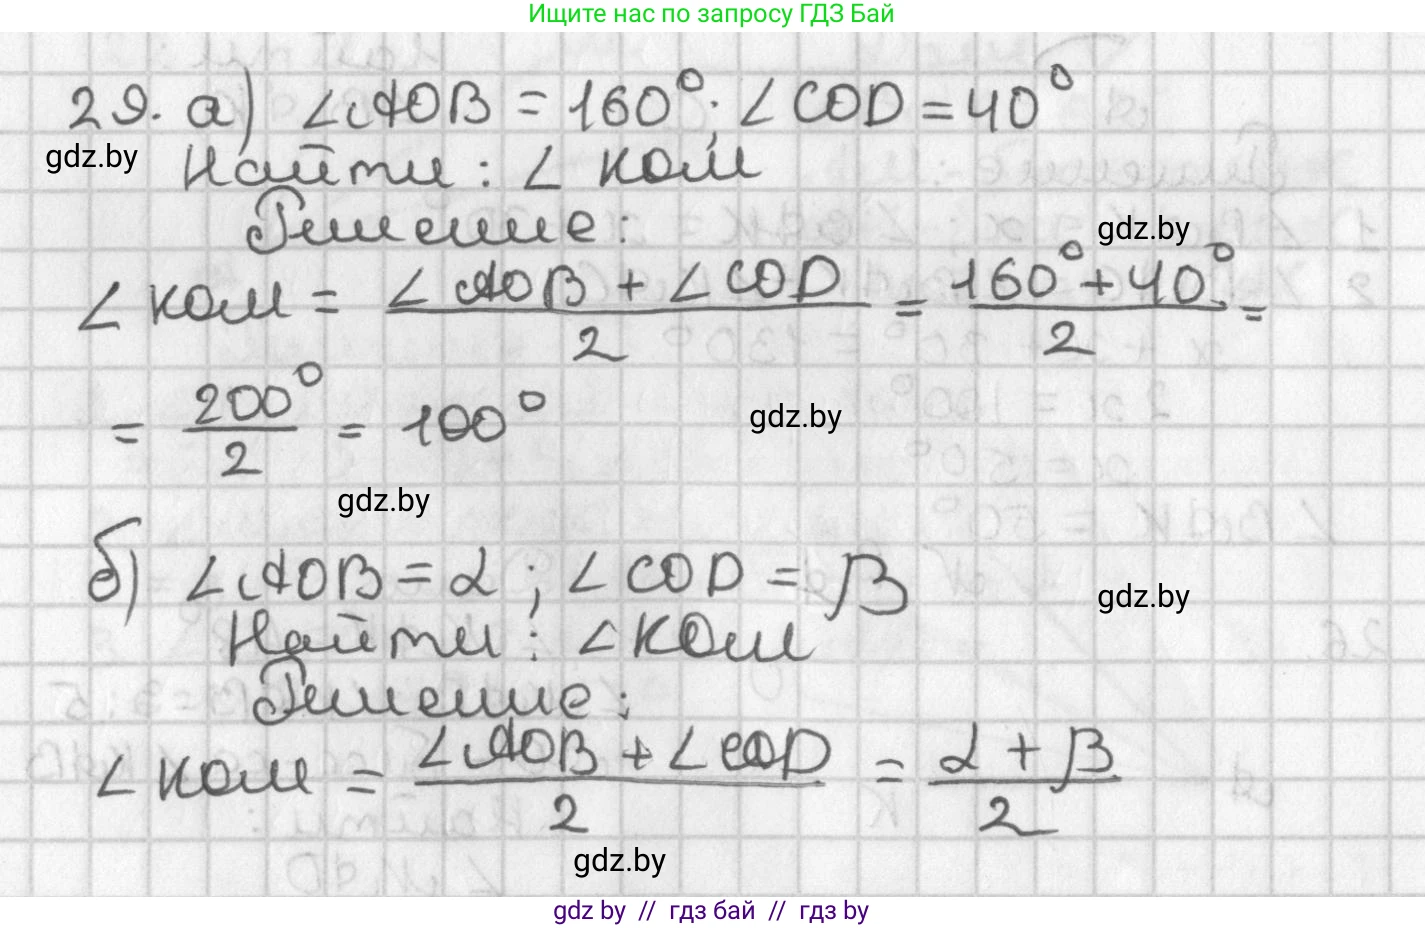 Ищите нас по запросу ГДЗ Бай
29. а) ∠AOB = 160°; ∠COD = 40°
gdz.by
Найти: ∠KOM
Решение:
gdz.by
∠KOM = (∠AOB + ∠COD)/2 = (160° + 40°)/2 =
= 200°/2 = 100°
gdz.by
gdz.by
б) ∠AOB = α; ∠COD = β
gdz.by
Найти: ∠KOM
Решение:
∠KOM = (∠AOB + ∠COD)/2 = (α + β)/2
gdz.by
gdz by // гдз бай // гдз by